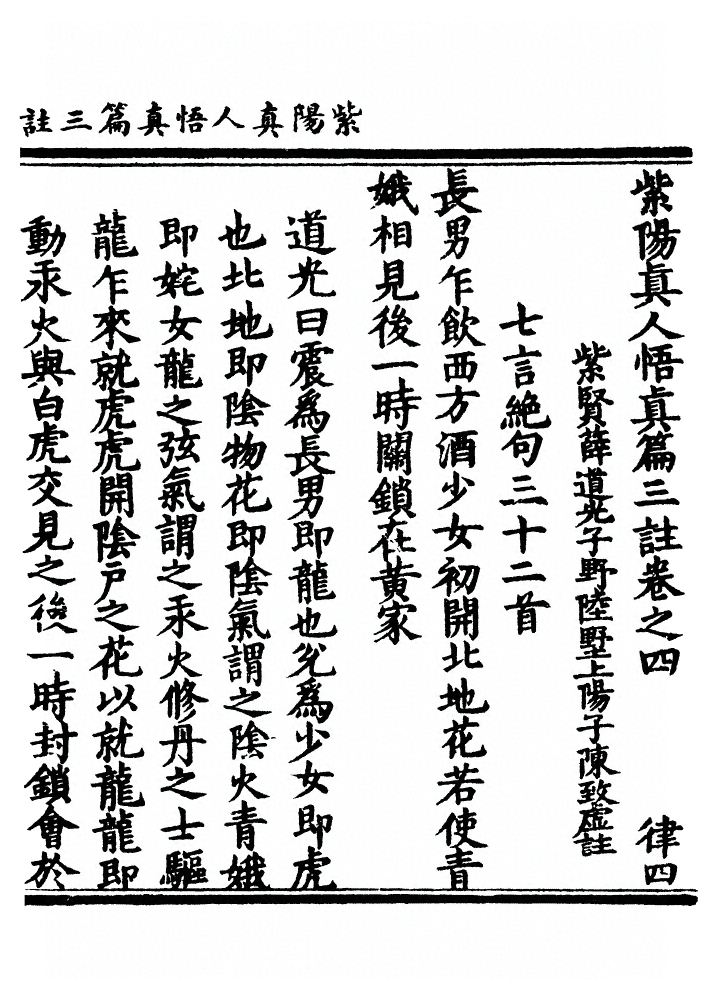 紫陽真人悟真篇三註
紫陽真人悟真篇三註卷之四 律四
紫賢薛道光子野陸墅上陽子陳致虛註
七言絕句三十二首
長男乍飲西方酒少女初開北地花若使青
娥相見後一時關鎖在黃家
道光曰震為長男即龍也兊為少女即虎
也北地即陰物花即陰氣謂之陰火青娥
即姹女龍之弦氣謂之汞火修丹之士驅
龍乍來就虎虎開陰戶之花以就龍龍即
動汞火與白虎交見之後一時封鎖會於